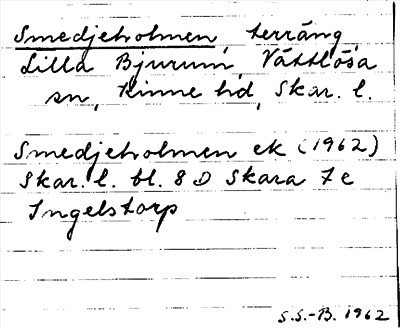 Smedjeholmen, terräng,
Lilla Bjurum, Vättlösa
sn, Kinne hd, Skar. l.
Smedjeholmen ek (1962)
Skar. l. bl. 8 D Skara 7 e
Ingelstorp
S.S.-B. 1962